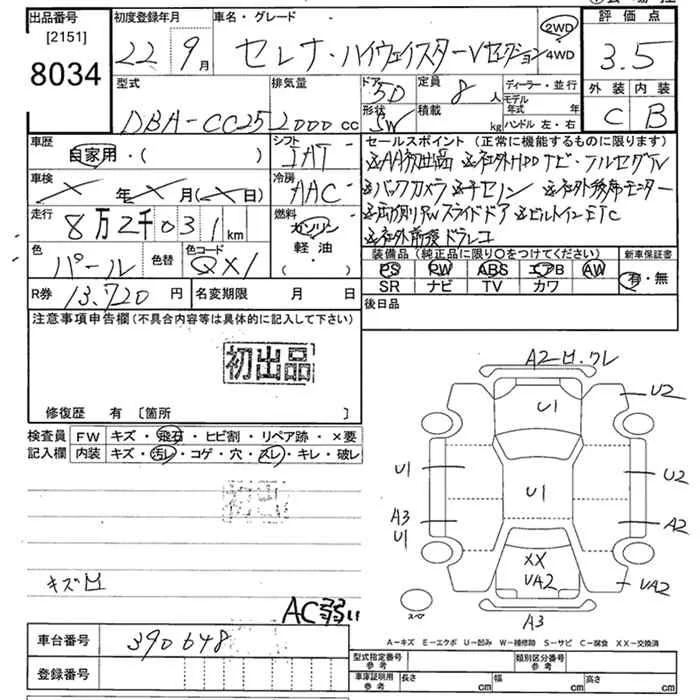 出品番号 初度登録年月 車名・グレード 2WD 評価点
[2151] 22年 9月 セレナ・ハイウェイスターVセレクション 4WD 3.5
8034 型式 排気量 ドア 5D 定員 8人 ディーラー・並行 外装 内装
DBA-CC25 2000cc 形状 SW 積載 kg モデル年式 年 ハンドル 左・右 C B
車歴 自家用・( ) シフト IAT セールスポイント (正常に機能するものに限ります)
☆AA初出品 ☆社外HDDナビ・フルセグTV
車検 X年X月(X日) 冷房 AAC ☆バックカメラ ☆社外後席モニター
走行 8万2千031km 燃料 ガソリン 軽油・( ) ☆両側PWスライドドア ☆ビルトインETC
☆社外前後ドラレコ
色 パール 色替 色コード QX1 装備品 (純正品に限り○をつけてください) 新車保証書
PS PW ABS エアB AW 有・無
R券 13,720円 名変期限 月 日 SR ナビ TV カワ
注意事項申告欄(不具合内容等は具体的に記入して下さい) 後日品
初出品
修復歴 有 [箇所 ]
検査員 FW キズ・飛石・ヒビ割・リペア跡・×要
記入欄 内装 キズ・汚レ・コゲ・穴・スレ・キレ・破レ
キズ凹
AC弱い
A2 凹.ワレ
U1
U2
U1
U2
U1
A3
U1
A2
XX
UA2
UA2
スペア
A3
A−キズ E−エクボ U−凹み W−補修跡 S−サビ C−腐食 XX−交換済
車台番号 390648
型式指定番号 参考 類別区分番号 参考
登録番号
車庫証明用 参考 長さ cm 幅 cm 高さ cm